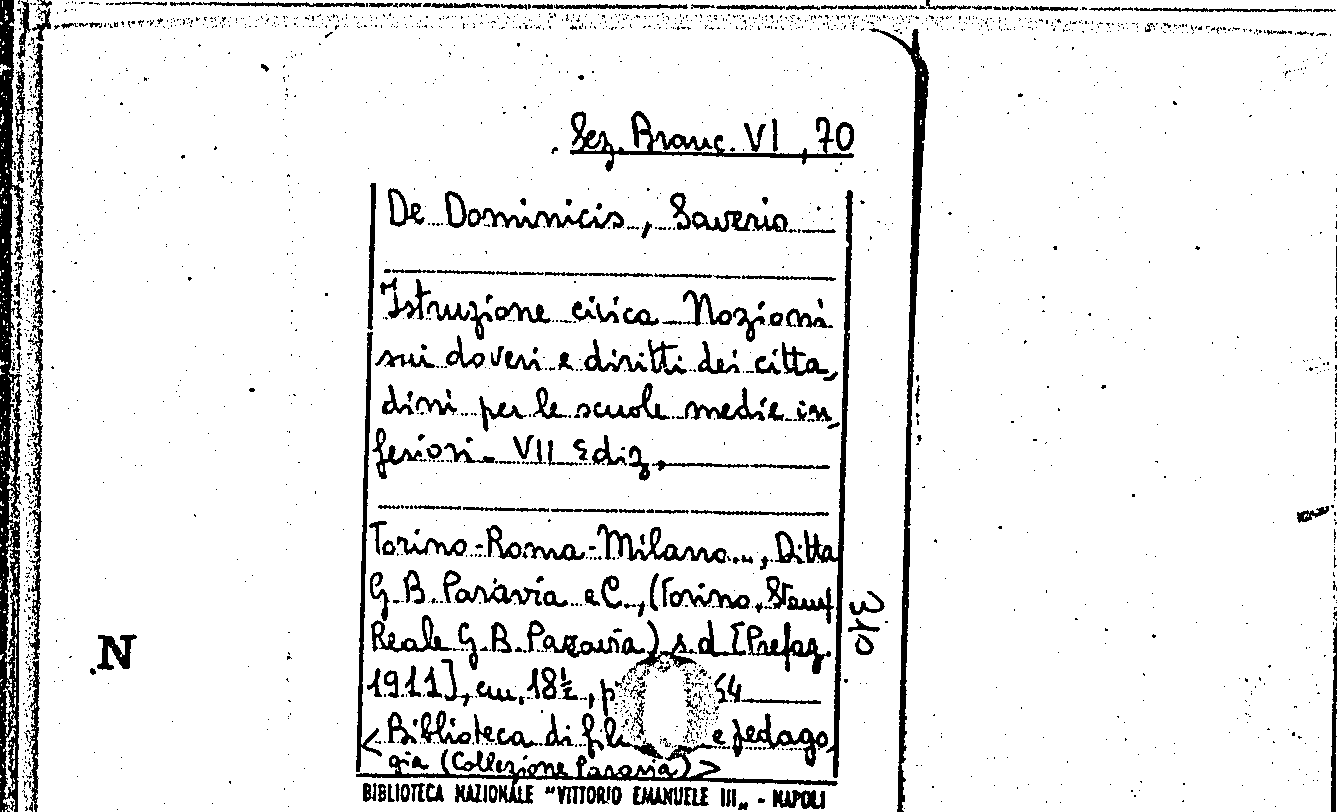 Sez. Branc. VI, 70
De Dominicis, Saverio
Istruzione civica Nozioni
sui doveri e diritti dei citta,
dini per le scuole medie in,
feriori - VII Ediz.
Torino-Roma-Milano..., Ditta
G. B. Paravia e C., (Torino, Stamp.
Reale G. B. Paravia) s. d. [Prefaz.
1911], cm. 18½, 54
<Biblioteca di e pedago,
gia (Collezione Paravia)>
310
N
BIBLIOTECA NAZIONALE "VITTORIO EMANUELE III" - NAPOLI